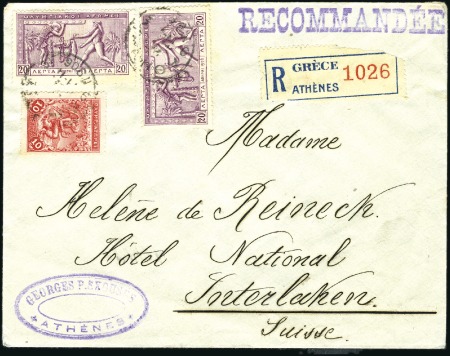 RECOMMANDÉE
20 ΛΕΠΤΑ ΛΕΠΤΑ 20
20 20
10 10
R GRÈCE
ATHÈNES 1026
Madame
Helène de Reineck.
Hôtel National
Interlaken.
Suisse.
GEORGES P.
ATHÈNES